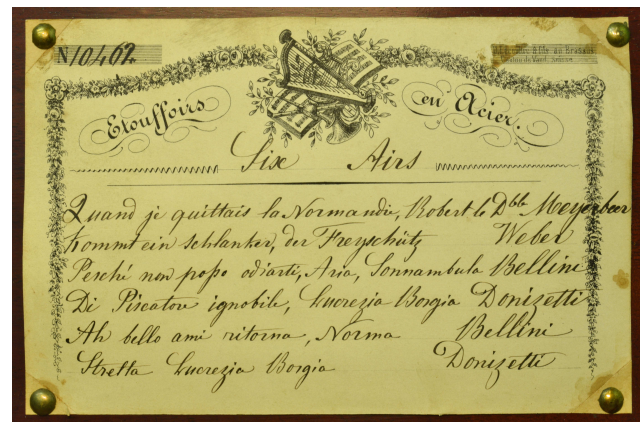 N 10462
Etouffoirs en Acier.
Six Airs
Quand je quittais la Normandie, Robert le Dble Meyerbeer
Kommt ein schlanker, der Freyschütz Weber
Perché non posso odiarti, Aria, Sonnambula Bellini
Di Piscatore ignobile, Lucrezia Borgia Donizetti
Ah bello ami ritorna, Norma Bellini
Stretta Lucrezia Borgia Donizetti